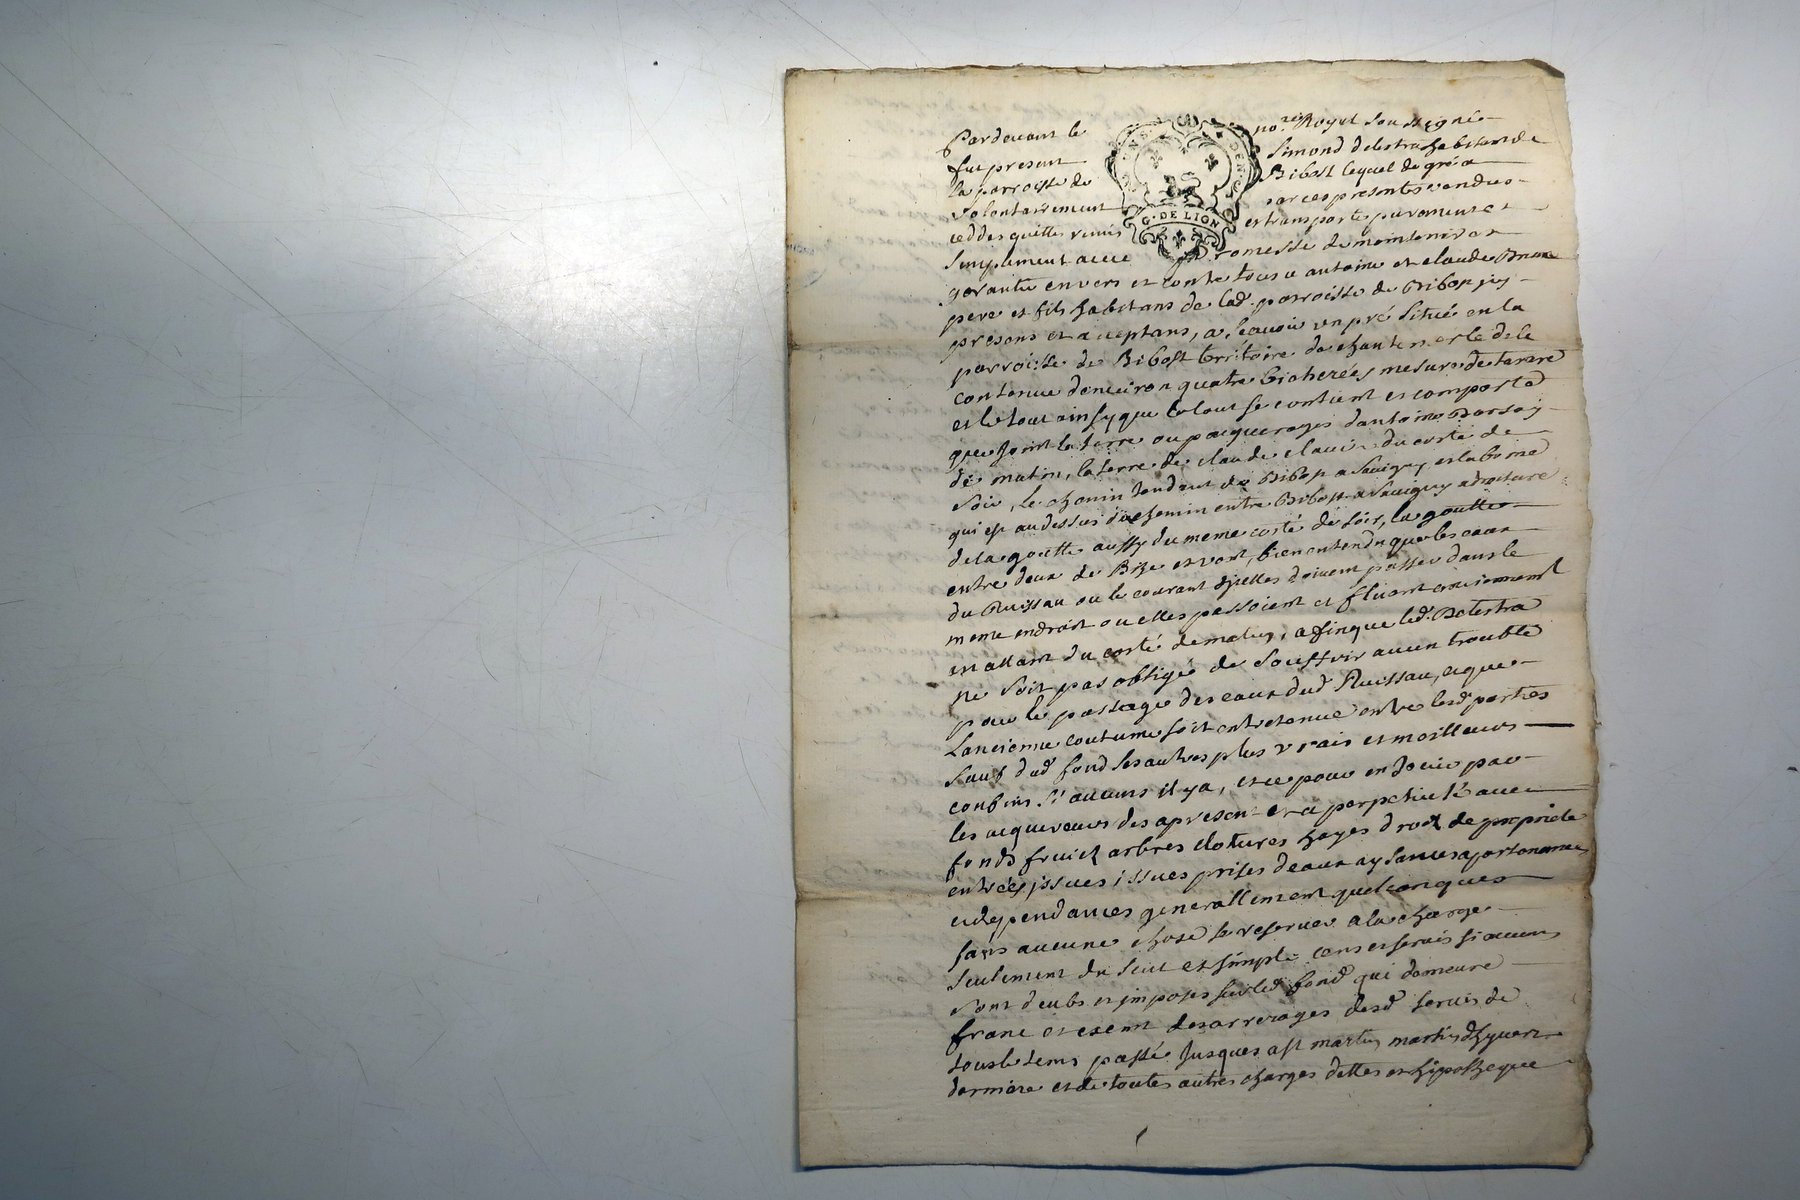 Pardevant le no.re Royal soussigné
fut present Simond delestra habitant de
la parroisse de Bibost lequel de gré a
volontairement par ces presentes vendu
cedde quitté remis et transporté purement et
simplement avec promesse de maintenir et
G. DE LION
garantie envers et contre tous a antoine et claude
pere et fils habitans de lad. parroisse de Bibost icy
presens et acceptans, a scavoir un pré situé en la
parroisse de Bibost territoire de
contenue d'environ quatre bicherées mesure de
et le tout ainsy que le tout se contient et comporte
que joint la terre ou paquerages d'antoine
de matin, la terre de claude du costé de
soir, le chemin tendant de Bibost a Savigny et la borne
qui est au dessus du chemin entre Bibost a Savigny
de la goutte aussy du meme costé de soir, la goutte
entre deux de Bize et vent, bien entendu que les eaux
du Ruissau ou le courant d'jcelles doivent passer dans le
meme endroit ou elles passoient et fluoient anciennement
en allant du costé de matin, afin que led. Delestra
ne soit pas obligé de souffrir aucun trouble
pour le passage des eaux dud Ruissau, et que
Lancienne coutume soit entretenue entre lesd parties
sauf dud fond ses autres plus vrais et meilleurs
confins sy aucuns il y a, et ce pour en jouir par
les acquereurs des apresent et a perpetuité avec
fonds fruict arbres clotures hayes droit de propriete
entrées issues prises deaux aysances apartenances
et dependances generallement quelconques
sans aucune chose se reserver a la charge
seulement du seul et simple cens et servis si aucuns
sont deubs et jmposes sur led fond qui demeure
franc et exemt des arrerages desd servis de
tous le tems passé jusques a st martin d'hyvert
derniere et de toutes autres charges dettes et hipotheque